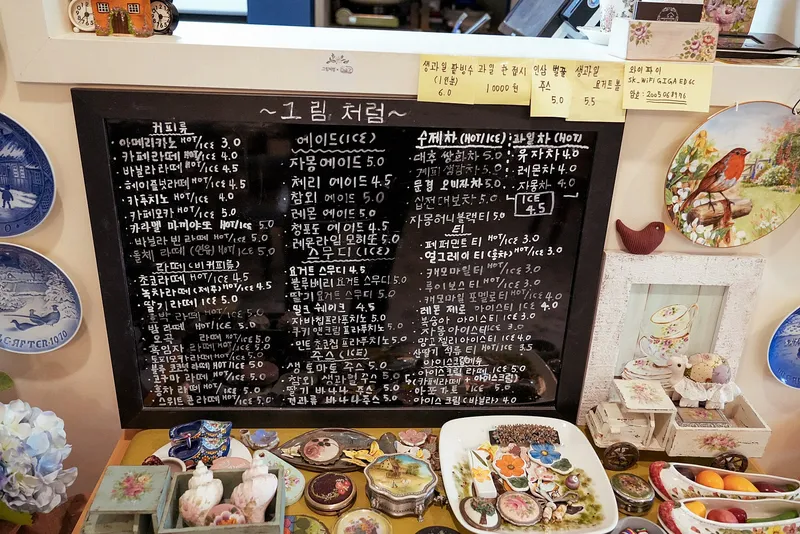 생과일 팥빙수
(1인분)
6.0
과일 한접시
10000원
인삼 벌꿀
주스
5.0
생과일
요거트 볼
5.5
와이파이
SK_WiFi GIGA ED6C
~그림 처럼~
커피류
아메리카노 HOT/ICE 3.0
카페라떼 HOT/ICE 4.0
바닐라 라떼 HOT/ICE 4.5
헤이즐넛라떼 HOT/ICE 4.5
카푸치노 HOT 4.0
카페모카 HOT 4.0
카라멜 마끼아또 HOT/ICE
바닐라 빈 라떼 HOT/ICE 5.0
라떼 (비커피류)
초코라떼 HOT/ICE 4.5
녹차라떼 (제주) HOT/ICE 4.5
딸기 라떼 ICE 5.0
호박 라떼 HOT/ICE 5.0
밤 라떼 HOT/ICE 5.0
오곡 라떼 HOT/ICE 5.0
흑임자 라떼 HOT/ICE 5.0
토피모카라떼 HOT/ICE 5.0
고구마 라떼 HOT/ICE 5.0
홍차 라떼 HOT/ICE 5.0
스위트 콘 라떼 HOT/ICE 5.0
에이드(ICE)
자몽 에이드 5.0
체리 에이드 4.5
참외 에이드 5.0
레몬 에이드 5.0
청포도 에이드 4.5
레몬라임 모히또 5.0
스무디 (ICE)
요거트 스무디 4.5
블루베리 요거트 스무디 5.0
딸기 요거트 스무디 5.0
밀크 쉐이크 4.5
자바칩프라푸치노 5.0
쿠키 앤크림 프라푸치노 5.0
민트 초코칩 프라푸치노 5.0
주스 (ICE)
생 토마토 주스 5.0
참외 생과일 주스 5.0
딸기 바나나 주스 5.0
견과류 바나나주스 5.0
수제차 (HOT/ICE)
대추 쌍화차 5.0
계피 생강차 5.0
문경 오미자차 5.0
십전대보차 5.0
자몽허니블랙티 5.0
과일차 (HOT)
유자차 4.0
레몬차 4.0
자몽차 4.0
ICE
4.5
티
페퍼민트 티 HOT/ICE 3.0
얼그레이 티 (홍차) HOT/ICE 3.0
캐모마일 티 HOT/ICE 3.0
루이보스 티 HOT/ICE 3.0
레몬 제로 아이스티 ICE 4.0
복숭아 아이스티 ICE 3.0
자몽 아이스티 ICE 3.0
망고 젤리아이스티 ICE 4.0
아이스크림메뉴
아이스크림 라떼 ICE 5.0
(카페라떼 + 아이스크림)
아포가토 ICE 5.0
아이스크림 (바닐라) 4.0